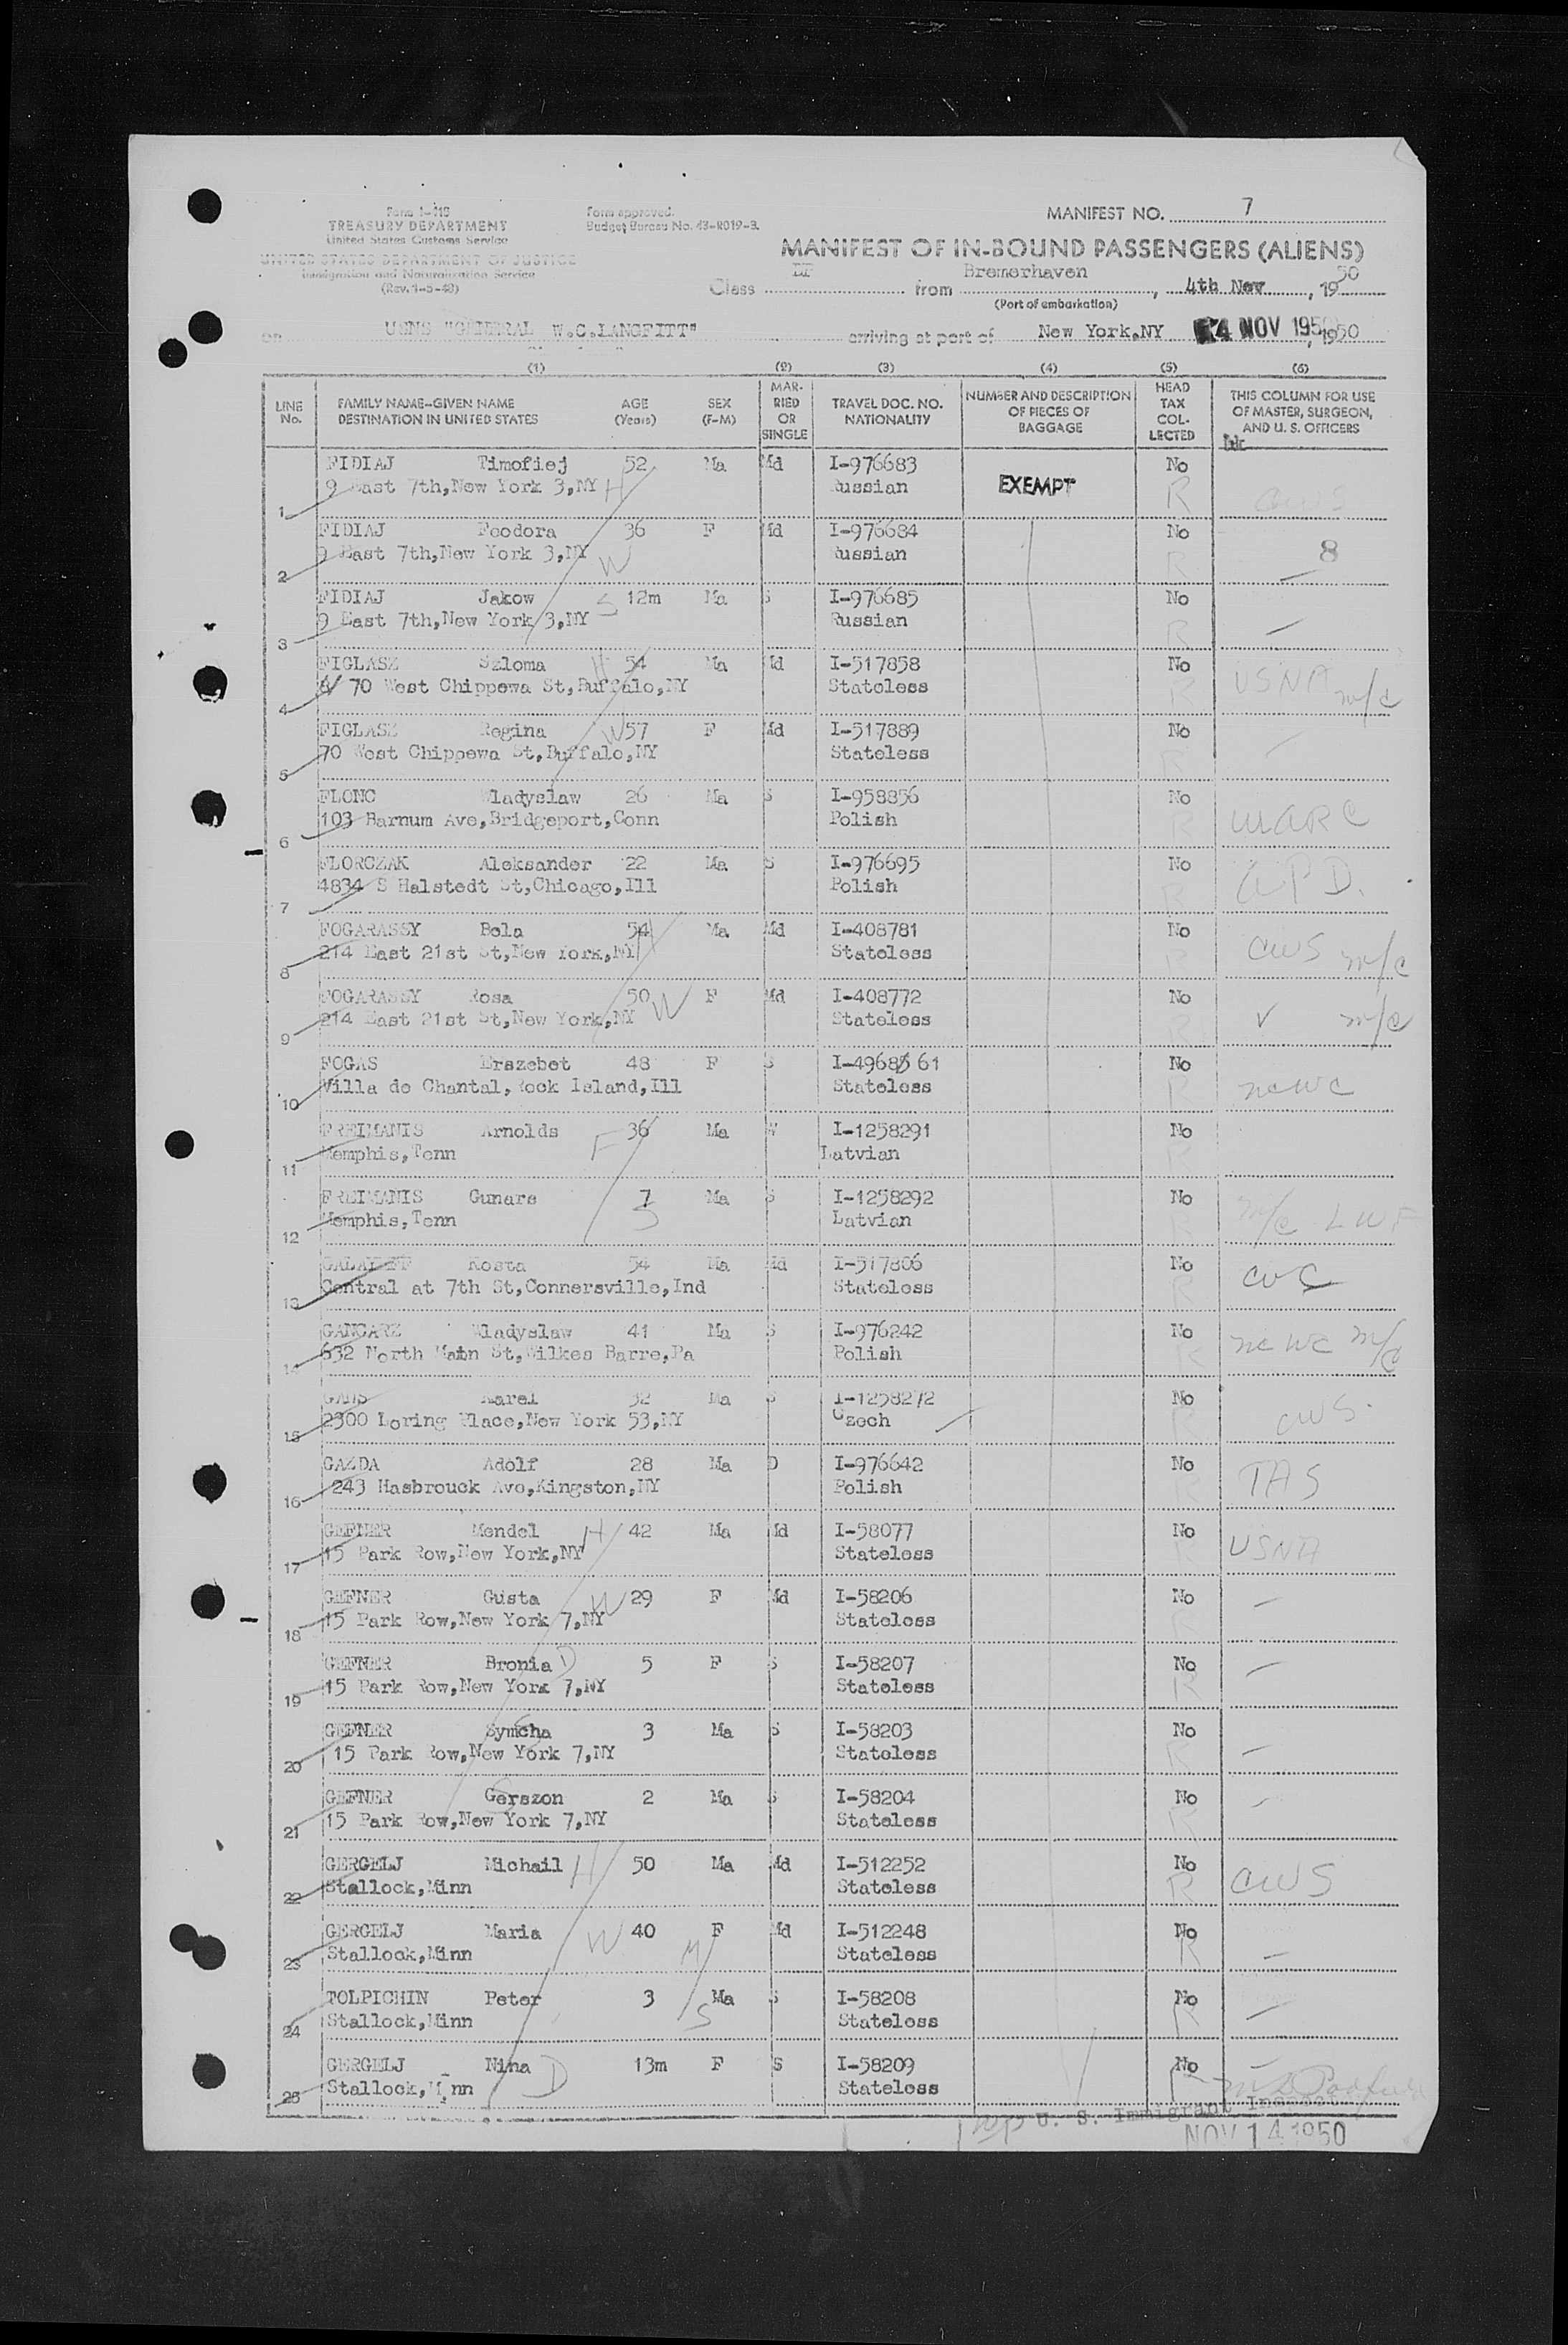 Form I-418
TREASURY DEPARTMENT
United States Customs Service
UNITED STATES DEPARTMENT OF JUSTICE
Immigration and Naturalization Service
(Rev. 1-5-48)
Form approved.
Budget Bureau No. 43-R019-3.
MANIFEST NO. 7
MANIFEST OF IN-BOUND PASSENGERS (ALIENS)
Class from Bremerhaven, 4th Nov, 1950
(Port of embarkation)
on USNS "GENERAL W.C.LANGFITT" arriving at port of New York,NY 14 NOV 1950, 1950
(1) (2) (3) (4) (5) (6)
LINE No. FAMILY NAME-GIVEN NAME DESTINATION IN UNITED STATES AGE (Years) SEX (F-M) MARRIED OR SINGLE TRAVEL DOC. NO. NATIONALITY NUMBER AND DESCRIPTION OF PIECES OF BAGGAGE HEAD TAX COLLECTED THIS COLUMN FOR USE OF MASTER, SURGEON, AND U. S. OFFICERS
FIDIAJ Timofiej 52 Ma Md I-976683 No
1 9 East 7th,New York 3,NY H Russian EXEMPT R CWS
FIDIAJ Feodora 36 F Md I-976684 No
2 9 East 7th,New York 3,NY W Russian R 8
FIDIAJ Jakow S 12m Ma S I-976685 No
3 9 East 7th,New York 3,NY Russian R
FIGLASZ Szloma H 54 Ma Md I-517858 No
4 70 West Chippewa St,Buffalo,NY Stateless R USNA m/c
FIGLASZ Regina W 57 F Md I-517889 No
5 70 West Chippewa St,Buffalo,NY Stateless R
FLONC Wladyslaw 26 Ma S I-958856 No
6 103 Barnum Ave,Bridgeport,Conn Polish R WARC
FLORCZAK Aleksander 22 Ma S I-976695 No
7 4834 S Halstedt St,Chicago,Ill Polish R APD.
FOGARASSY Bela 54 H Ma Md I-408781 No
8 214 East 21st St,New York,NY Stateless R CWS m/c
FOGARASSY Rosa 50 W F Md I-408772 No
9 214 East 21st St,New York,NY Stateless R V m/c
FOGAS Erszebet 48 F S I-49685 61 No
10 Villa de Chantal,Rock Island,Ill Stateless R NCWC
FREIMANIS Arnolds 36 Ma W I-1258291 No
11 Memphis,Tenn F Latvian R
FREIMANIS Gunars 7 Ma S I-1258292 No
12 Memphis,Tenn S Latvian R m/c LWF
GALAJEFF Kosta 54 Ma Md I-517806 No
13 Central at 7th St,Connersville,Ind Stateless R
GANCARZ Wladyslaw 41 Ma S I-976242 No
14 632 North Main St,Wilkes Barre,Pa Polish R NCWC m/c
GANS Karel 32 Ma S I-1258272 No
15 2300 Loring Place,New York 53,NY Czech R CWS.
GAZDA Adolf 28 Ma D I-976642 No
16 243 Hasbrouck Ave,Kingston,NY Polish R TAS
GEFNER Mendel H 42 Ma Md I-58077 No
17 15 Park Row,New York,NY Stateless R USNA
GEFNER Gusta W 29 F Md I-58206 No
18 15 Park Row,New York 7,NY Stateless R
GEFNER Bronia D 5 F S I-58207 No
19 15 Park Row,New York 7,NY Stateless R
GEFNER Symcha S 3 Ma S I-58203 No
20 15 Park Row,New York 7,NY Stateless R
GEFNER Gerszon 2 Ma S I-58204 No
21 15 Park Row,New York 7,NY Stateless R
GERGELJ Michail H 50 Ma Md I-512252 No
22 Stallock,Minn Stateless R CWS
GERGELJ Maria W 40 F Md I-512248 No
23 Stallock,Minn M Stateless R
TOLPICHIN Peter 3 Ma S I-58208 No
24 Stallock,Minn S Stateless R
GERGELJ Nina 13m F S I-58209 No
25 Stallock,Minn D Stateless R
U. S. Immigrant Inspector
NOV 14 1950